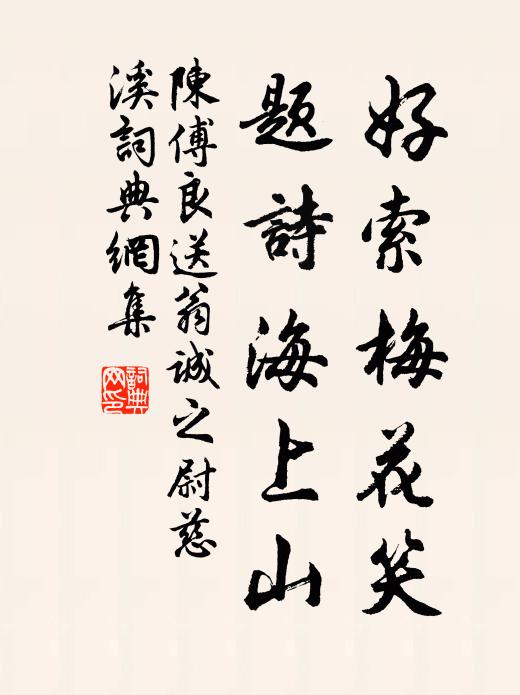 好索梅花笑
題詩海上山
陳傅良送翁誠之尉慈
溪詞典網集
詞典网印